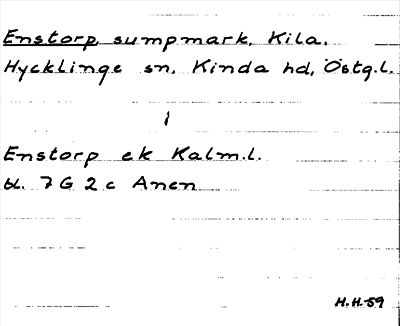 Enstorp, sumpmark, Kila,
Hycklinge sn, Kinda hd, Östg.l.
Enstorp ek Kalm.l.
bl. 7 G 2 c Anen
H.H-59